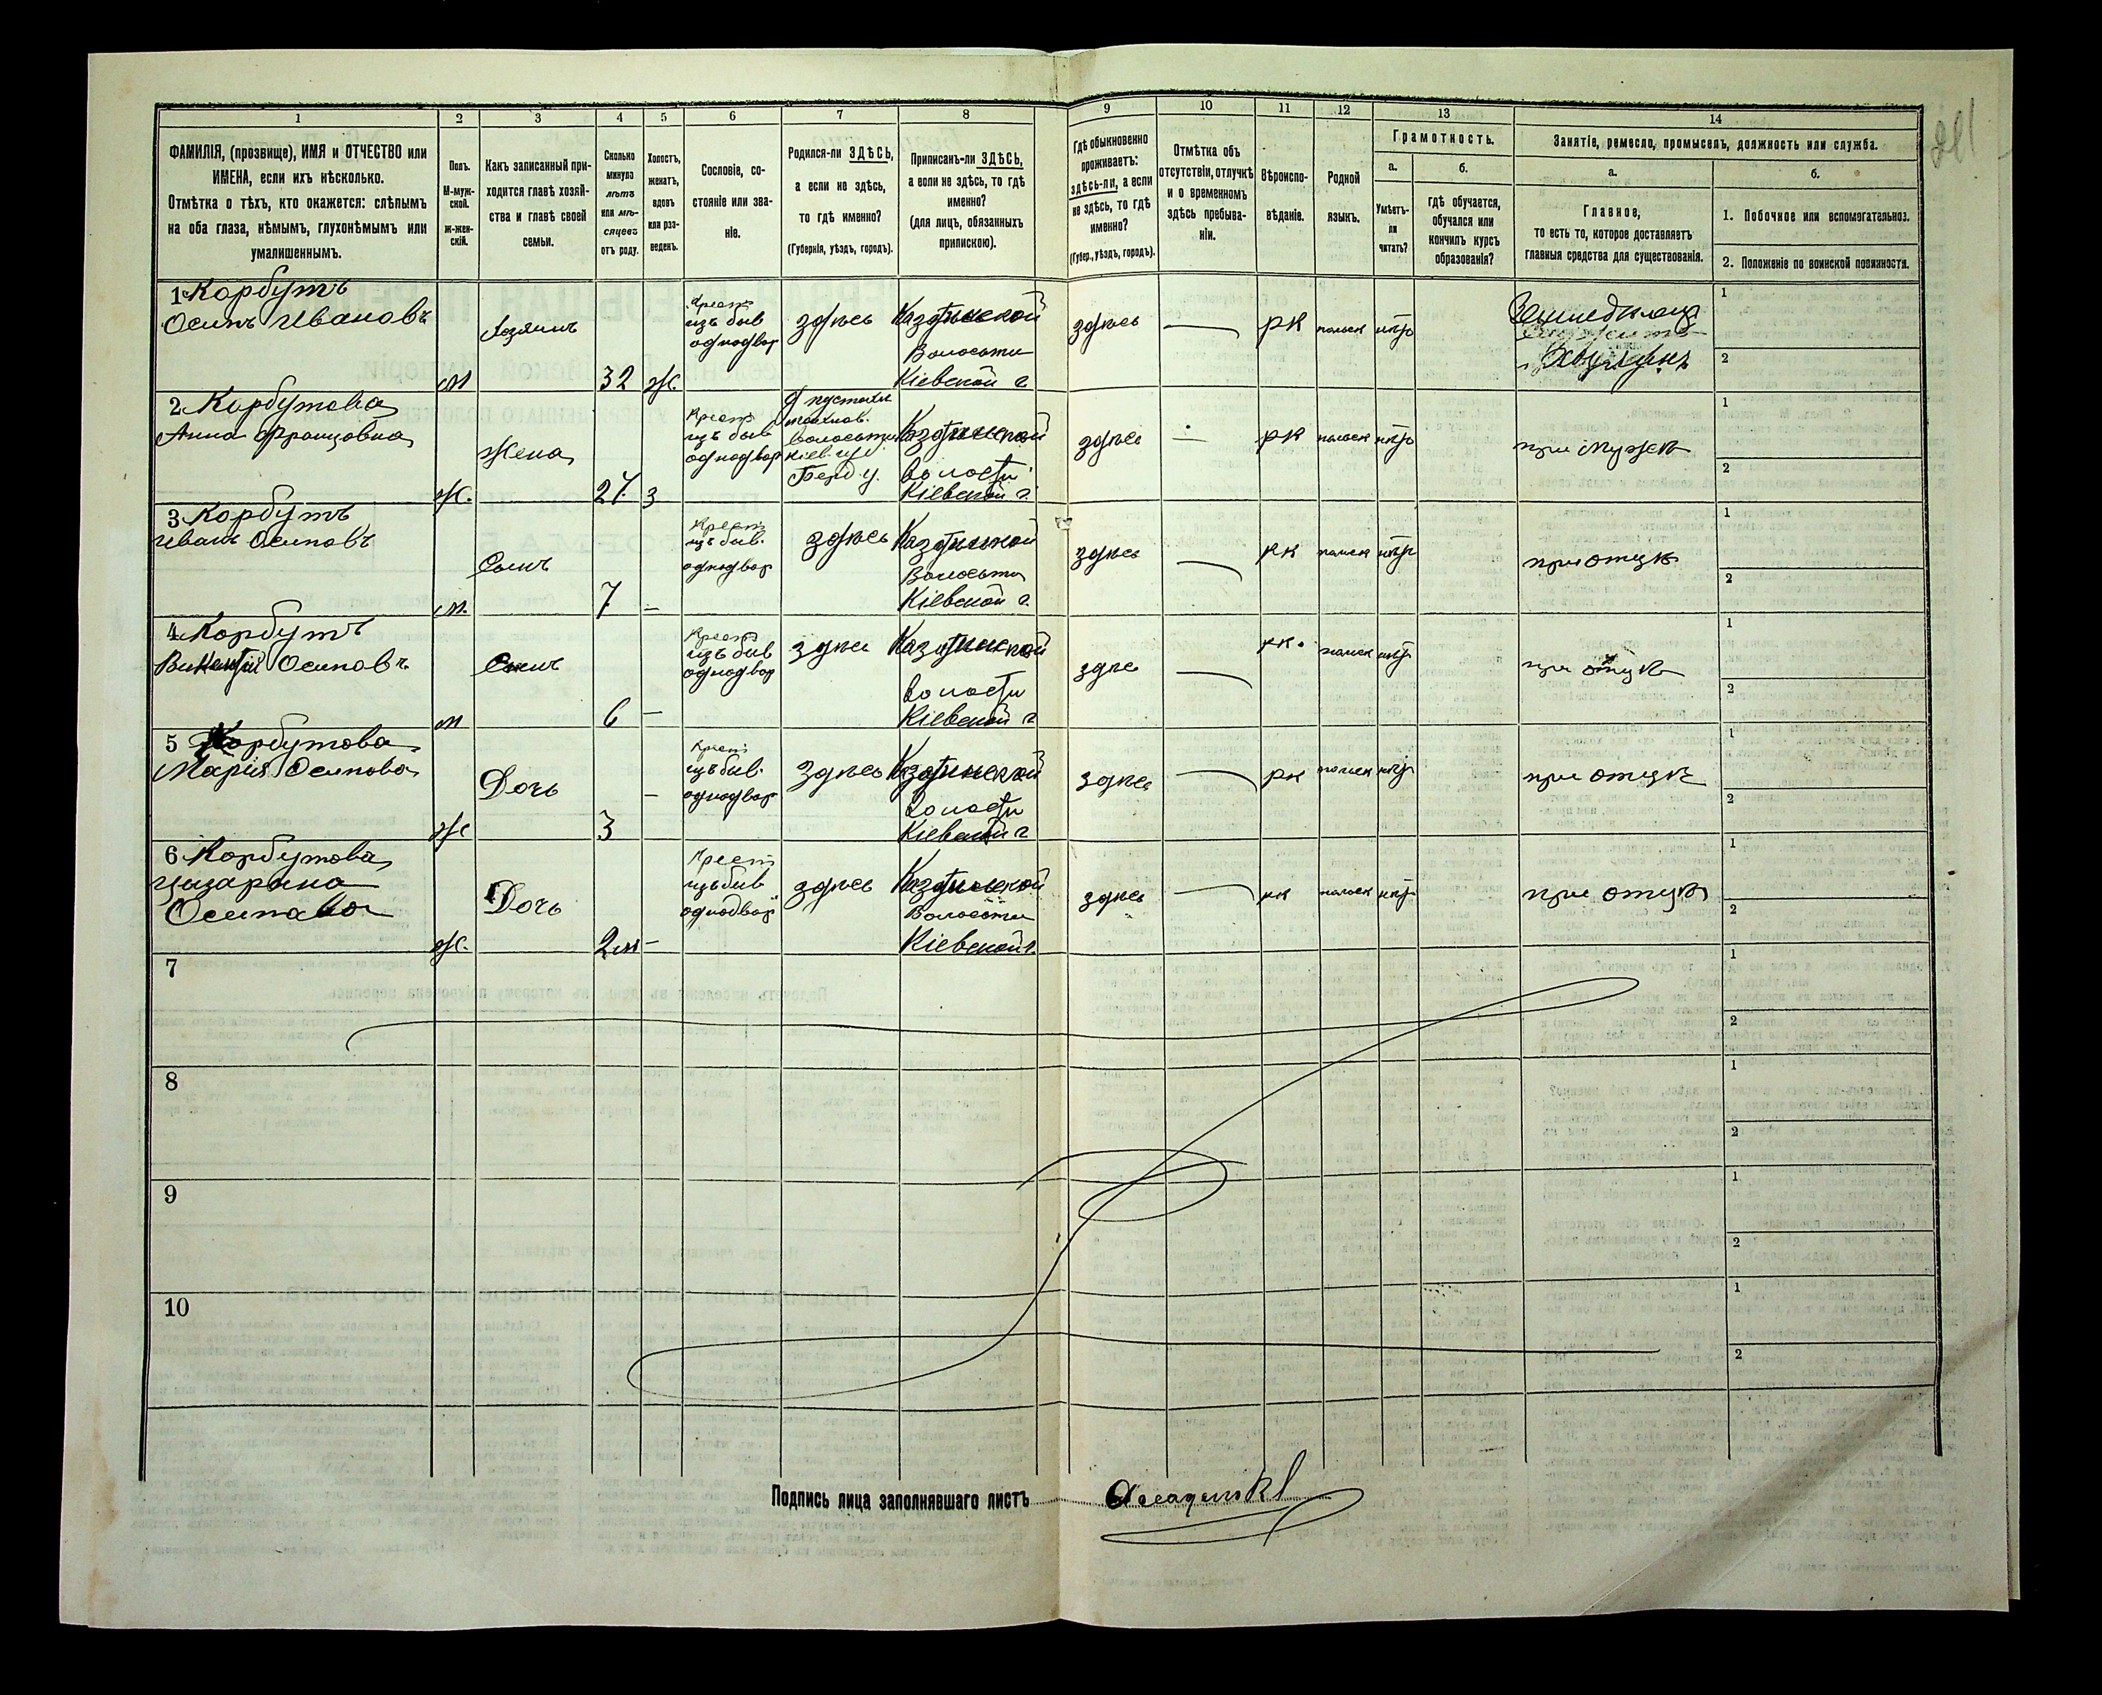 1 2 3 4 5 6 7 8 9 10 11 12 13 14
ФАМИЛІЯ, (прозвище), ИМЯ и ОТЧЕСТВО или
ИМЕНА, если ихъ нѣсколько.
Отмѣтка о тѣхъ, кто окажется: слѣпымъ
на оба глаза, нѣмымъ, глухонѣмымъ или
умалишеннымъ.
Полъ.
М-муж-
ской.
ж-жен-
скій.
Какъ записанный при-
ходится главѣ хозяй-
ства и главѣ своей
семьи.
Сколько
минуло
лѣтъ
или мѣ-
сяцевъ
отъ роду.
Холостъ,
женатъ,
вдовъ
или раз-
веденъ.
Сословіе, со-
стояніе или зва-
ніе.
Родился-ли ЗДѢСЬ,
а если не здѣсь,
то гдѣ именно?
(Губернія, уѣздъ, городъ).
Приписанъ-ли ЗДѢСЬ,
а если не здѣсь, то гдѣ
именно?
(для лицъ, обязанныхъ
припискою).
Гдѣ обыкновенно
проживаетъ:
здѣсь-ли, а если
не здѣсь, то гдѣ
именно?
(Губер., уѣздъ, городъ).
Отмѣтка объ
отсутствіи, отлучкѣ
и о временномъ
здѣсь пребыва-
ніи.
Вѣроиспо-
вѣданіе.
Родной
языкъ.
Грамотность.
а.
Умѣетъ-
ли
читать?
б.
гдѣ обучается,
обучался или
кончилъ курсъ
образованія?
Занятіе, ремесло, промыселъ, должность или служба.
а.
Главное,
то есть то, которое доставляетъ
главныя средства для существованія.
б.
1. Побочное или вспомогательное.
2. Положеніе по воинской повинности.
1 Корбутъ
Осипъ Ивановъ
м
Хозяинъ
32
ж.
Крест
изъ быв
однодвор
здѣсь
Казатинской
Волости
Кіевской г
здѣсь
рк
польск
нѣтъ
1
2
2 Корбутова
Анна Францовна
ж.
Жена
27
з
Крест
изъ быв
однодвор
волости
Кіев. губ.
Берд у.
Казатинской
волости
Кіевской г.
здѣсь
рк
польск
нѣтъ
при мужѣ
1
2
3 Корбутъ
Иванъ Осиповъ
м.
Сынъ
7
–
Крест
изъ быв.
однодвор
здѣсь
Казатинской
Волости
Кіевской г.
здѣсь
рк
польск
нѣтъ
при отцѣ
1
2
4 Корбутъ
Викентій Осиповъ
м
Сынъ
6
–
Крест
изъ быв
однодвор
здѣсь
Казатинской
волости
Кіевской г
здѣсь
рк.
польск
нѣтъ
при отцѣ
1
2
5 Корбутова
Марія Осипова
ж
Дочь
3
–
Крест
изъ быв.
однодвор
здѣсь
Казатинской
волости
Кіевской г
здѣсь
рк
польск
нѣтъ
при отцѣ
1
2
6 Корбутова
Цезарина
Осипова
ж.
Дочь
2 м
–
Крест
изъ быв
однодвор
здѣсь
Казатинской
Волости
Кіевской г.
здѣсь
рк
польск
нѣтъ
при отцѣ
1
2
7
1
2
8
1
2
9
1
2
10
1
2
Подпись лица заполнявшаго листъ